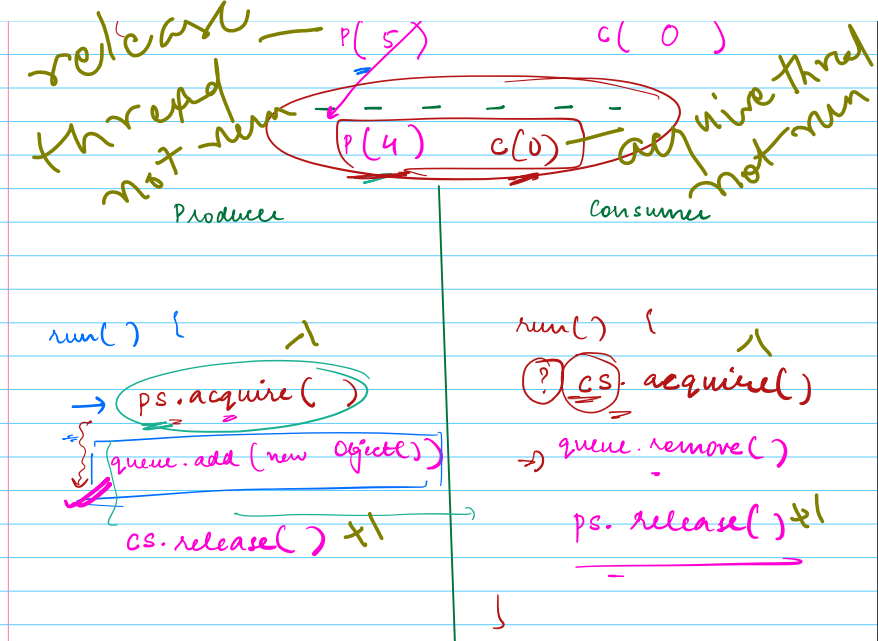 release — P(5) C(0)
thread not run
P(4) C(0) — acquire thread not run
Producer Consumer
run() {
-1
→ ps.acquire( )
queue.add(new Object())
cs.release() +1
run() {
-1
? cs.acquire()
→ queue.remove()
ps.release() +1
}